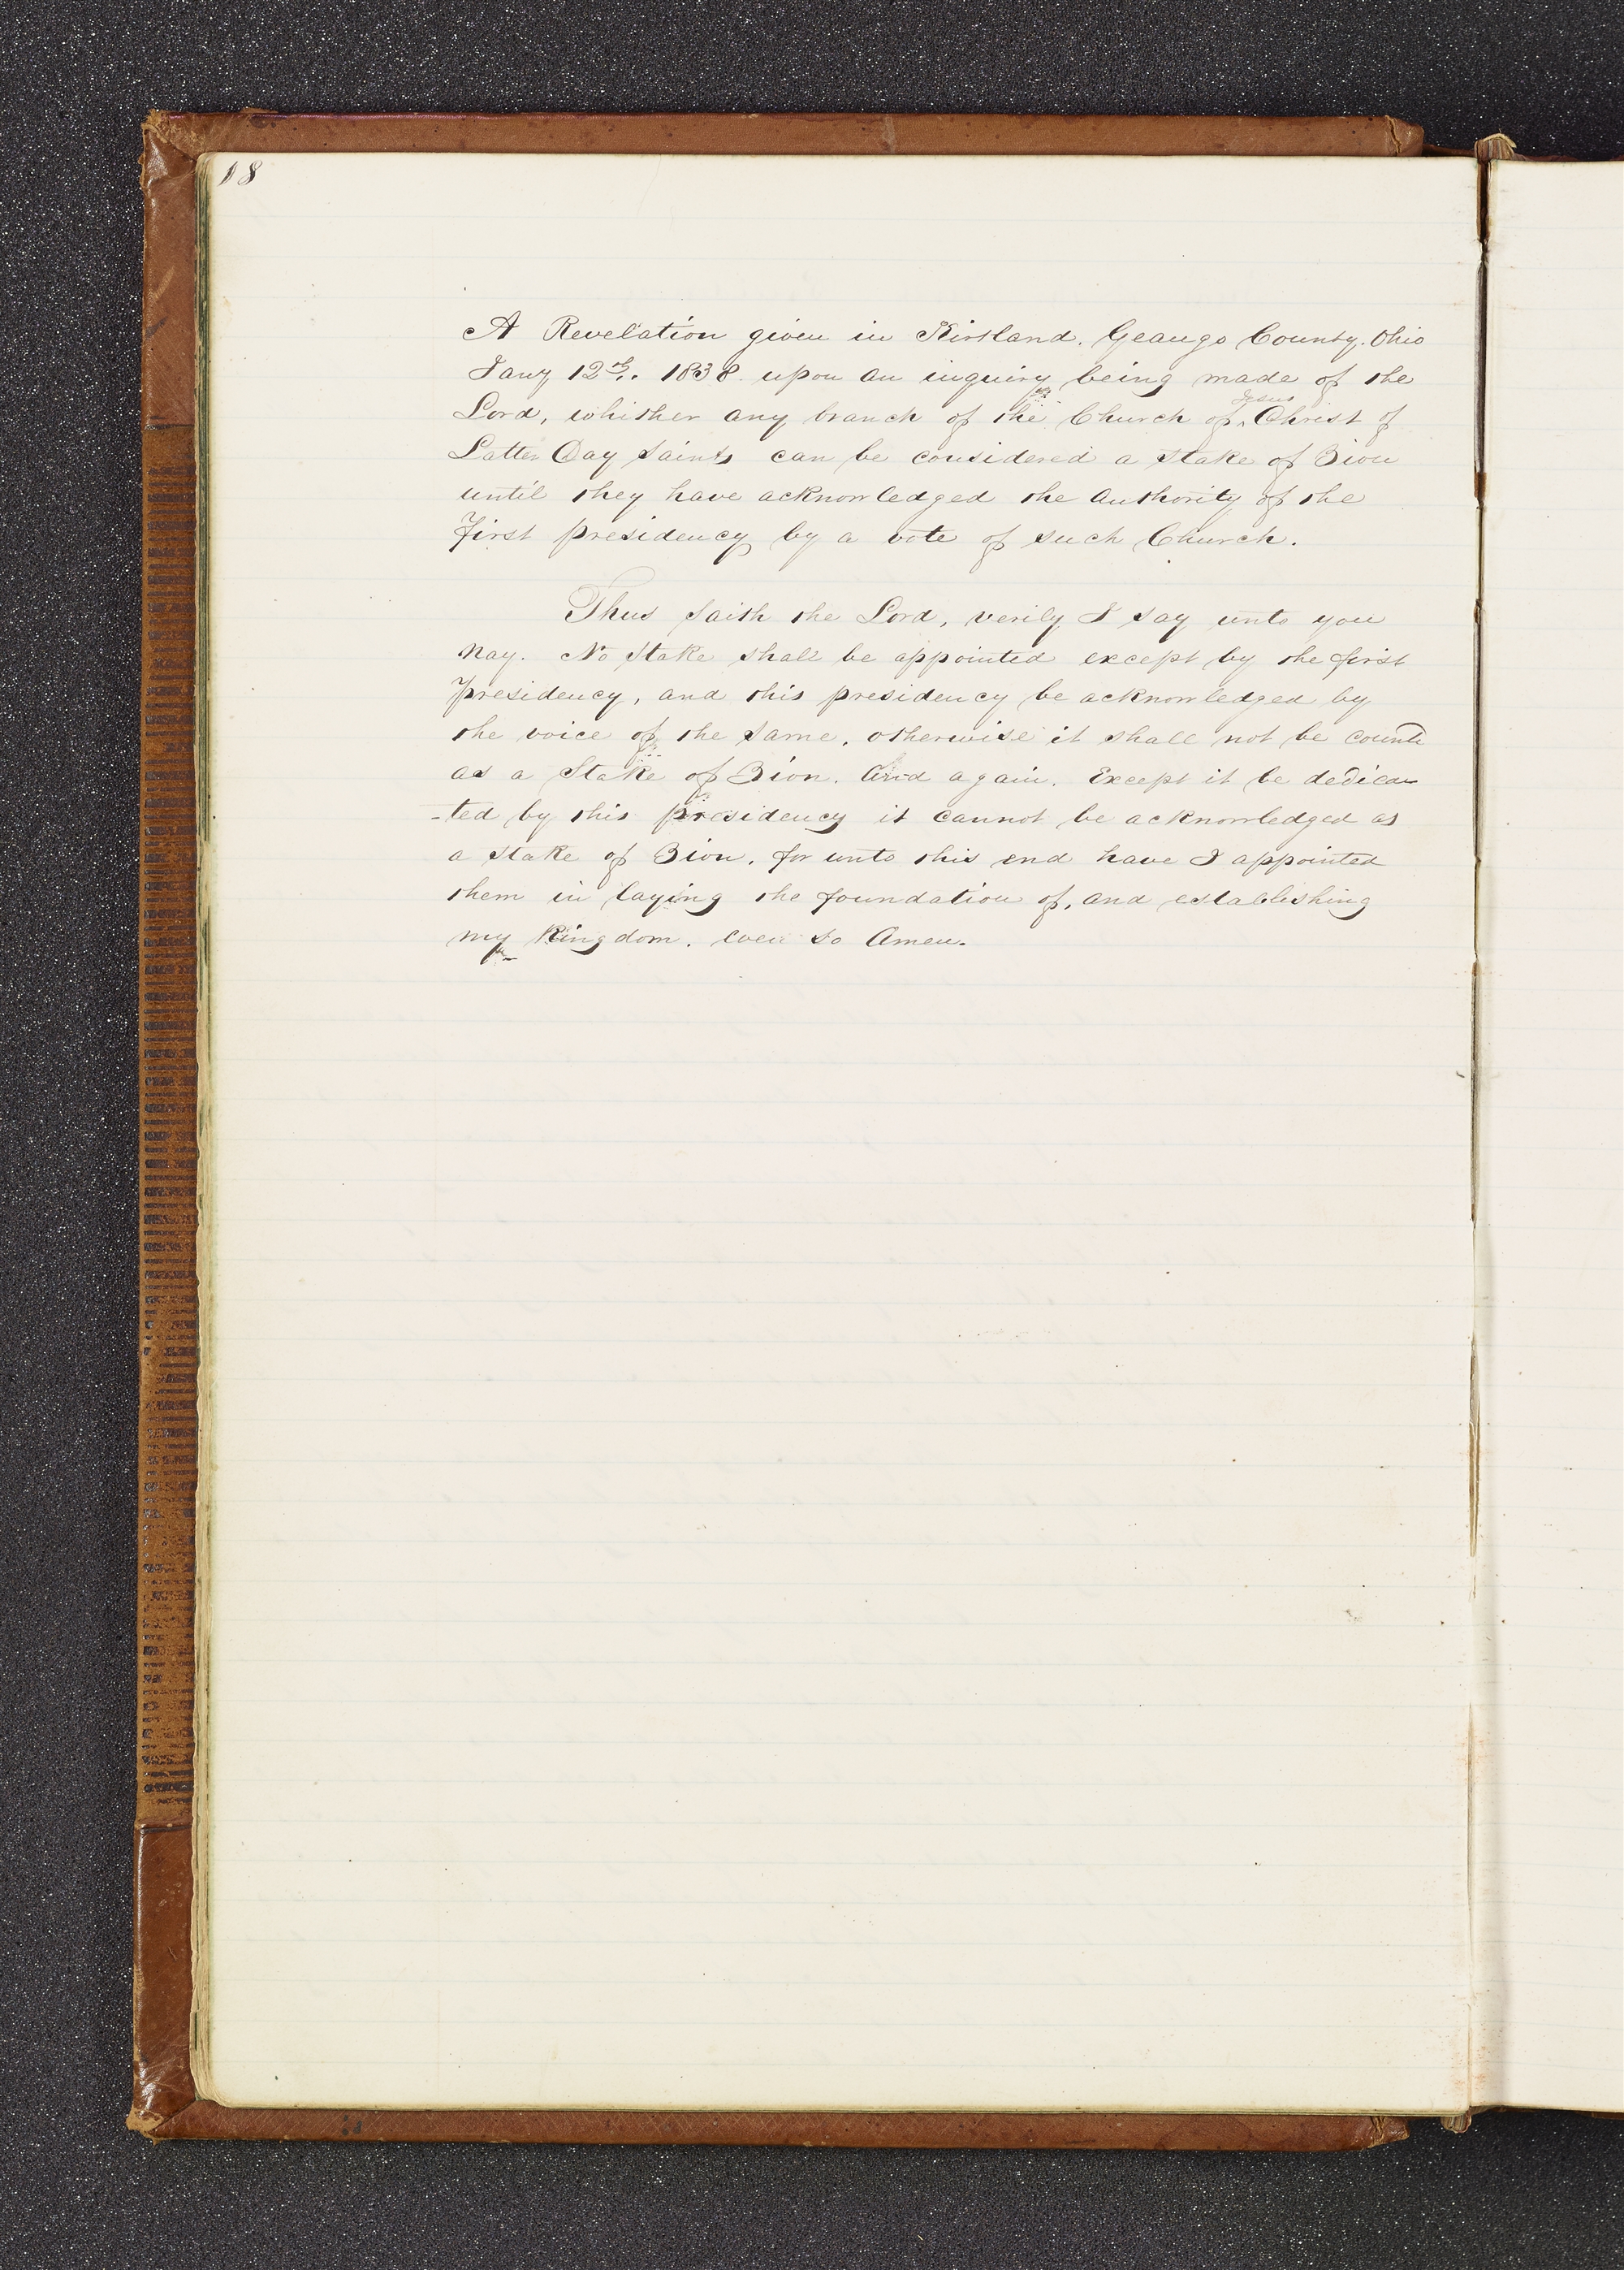 18
A Revelation given in Kirtland, Geauga County, Ohio
Jany 12th. 1838 upon an inquiry being made of the
Lord, whither any branch of the Church of ^Jesus Christ of
Latter Day Saints can be considered a Stake of Zion
until they have acknowledged the Authority of the
First presidency by a vote of such Church.
Thus saith the Lord, verily I say unto you
Nay. No Stake shall be appointed except by the first
Presidency, and this presidency be acknowledged by
the voice of the same, otherwise it shall not be counte
as a Stake of Zion. And again. Except it be dedica
-ted by this presidency it cannot be acknowledged as
a Stake of Zion, for unto this end have I appointed
them in laying the foundation of, and establishing
my Kingdom. even so Amen.